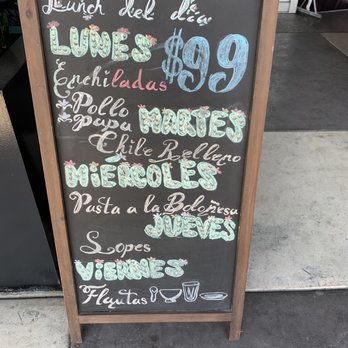 Lunch del dia
LUNES $99
Enchiladas
Pollo
papa MARTES
Chile Relleno
MIERCOLES
Pasta a la Boloñesa
JUEVES
Sopes
VIERNES
Flautas